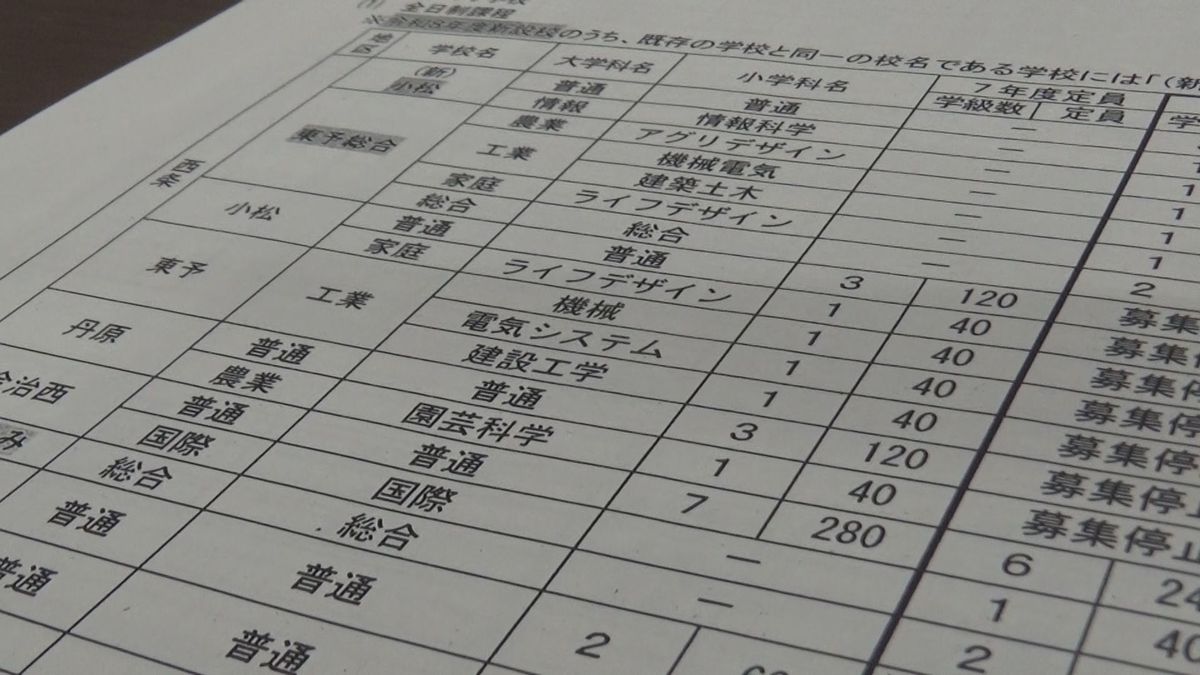 (1) 全日制課程
※令和8年度新設校のうち、既存の学校と同一の校名である学校には「(新
地区 学校名 大学科名 小学科名 7年度定員
学級数 定員 学
西条 (新)小松 普通 普通 －
東予総合 情報 情報科学 －
農業 アグリデザイン － 1
工業 機械電気 － 1
建築土木 － 1
家庭 ライフデザイン － 1
総合 総合 － 2
小松 普通 普通 3 120 募集
家庭 ライフデザイン 1 40 募集
東予 工業 機械 1 40 募集停
電気システム 1 40 募集停
建設工学 1 40 募集停
丹原 普通 普通 3 120 募集停
農業 園芸科学 1 40 募集停止
今治西 普通 普通 7 280 6 24
国際 国際 － 1 40
み 総合 総合 － 2
普通 普通 2
普通 普通